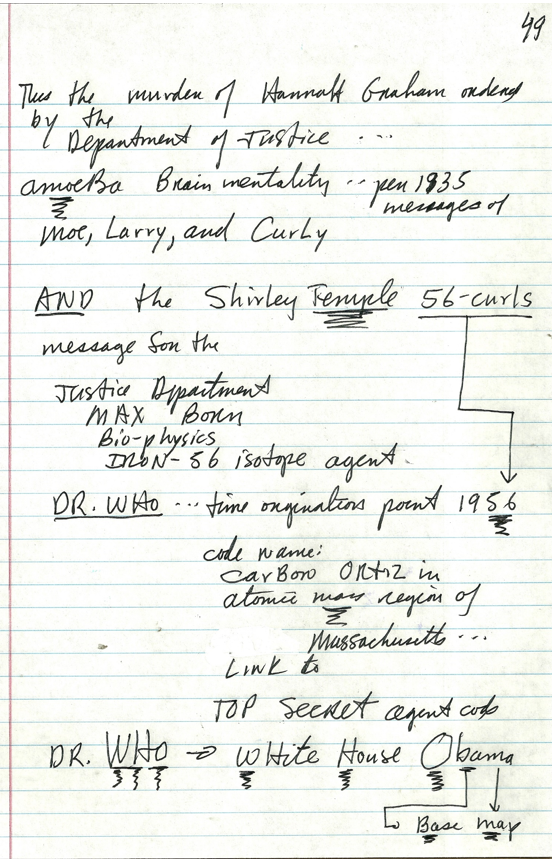 49
Thus the murder of Hannah Graham ordered
by the
Department of Justice ....
amoeBa Brain mentality .. per 1935
messages of
Moe, Larry, and Curly
AND the Shirley Temple 56-curls
message for the
Justice Department
MAX BORN
Bio-physics
IRON-56 isotope agent.
DR. WHO ... time origination point 1956
code name:
carBon ORtiz in
atomic mass region of
Massachusetts ...
LINK to
TOP Secret agent code
DR. WHO → WHite House Obama
Base map